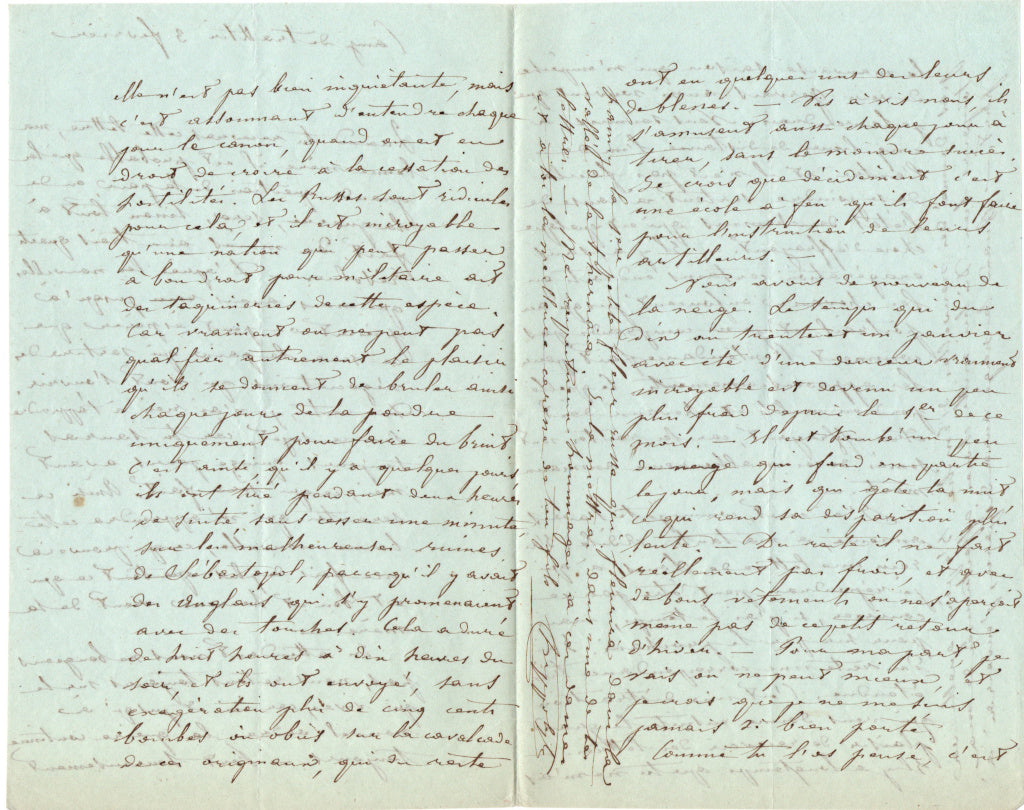 elle n'est pas bien inquiétante, mais
c'est assommant d'entendre chaque
jour le canon, quand on est en
droit de croire à la cessation des
hostilités. Les Russes sont ridicules
pour cela, et il est incroyable
qu'une nation qui peut passer
à bon droit pour militaire ait
des taquineries de cette espèce.
Car vraiment on ne peut pas
qualifier autrement le plaisir
qu'ils se donnent de bruler ainsi
chaque jour de la poudre
uniquement pour faire du bruit
C'est ainsi qu'il y a quelques jours
ils ont tiré pendant deux heures
de suite, sans cesser une minute,
sur les malheureuses ruines
de Sébastopol, parcequ'il y avait
des Anglais qui s'y promenaient
avec des torches. Cela a duré
de huit heures à dix heures du
soir, et ils ont envoyé, sans
exagération plus de cinq cents
bombes ou obus sur la cavalcade
de ces originaux, qui du reste
ont eu quelques uns des leurs
de blessés. — Vis à vis nous, ils
s'amusent aussi chaque jour à
tirer, sans le moindre succès.
Je crois que décidément c'est
une école à feu qu'ils font faire
pour l'instruction de leurs
artilleurs. —
Nous avons de nouveau de
la neige. Le temps qui du
dix au trente et un janvier
avait été d'une douceur vraiment
incroyable est devenu un peu
plus froid depuis le 1er de ce
mois. — Il est tombé un peu
de neige qui fond en partie
le jour, mais qui gèle la nuit
ce qui rend sa disparition plus
lente. — Du reste il ne fait
réellement pas froid, et avec
de bons vêtements on ne s'aperçoit
même pas de ce petit retour
d'hiver. — Pour ma part, je
vais on ne peut mieux, et
je crois que je ne me suis
jamais si bien porté
Comme tu l'as pensé, c'est
la petite fleur russe qui fleurira dans
de la et tu la mettras dans un de tes
— Mes respectueux hommages à ces dames
et à toi